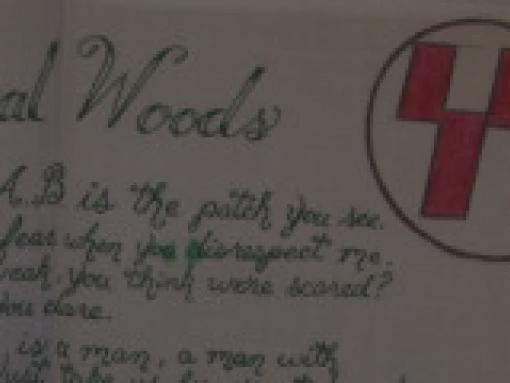 al Woods
A.B is the patch you see.
fear when you disrespect me.
you think were scared?
you dare.
is a man, a man with